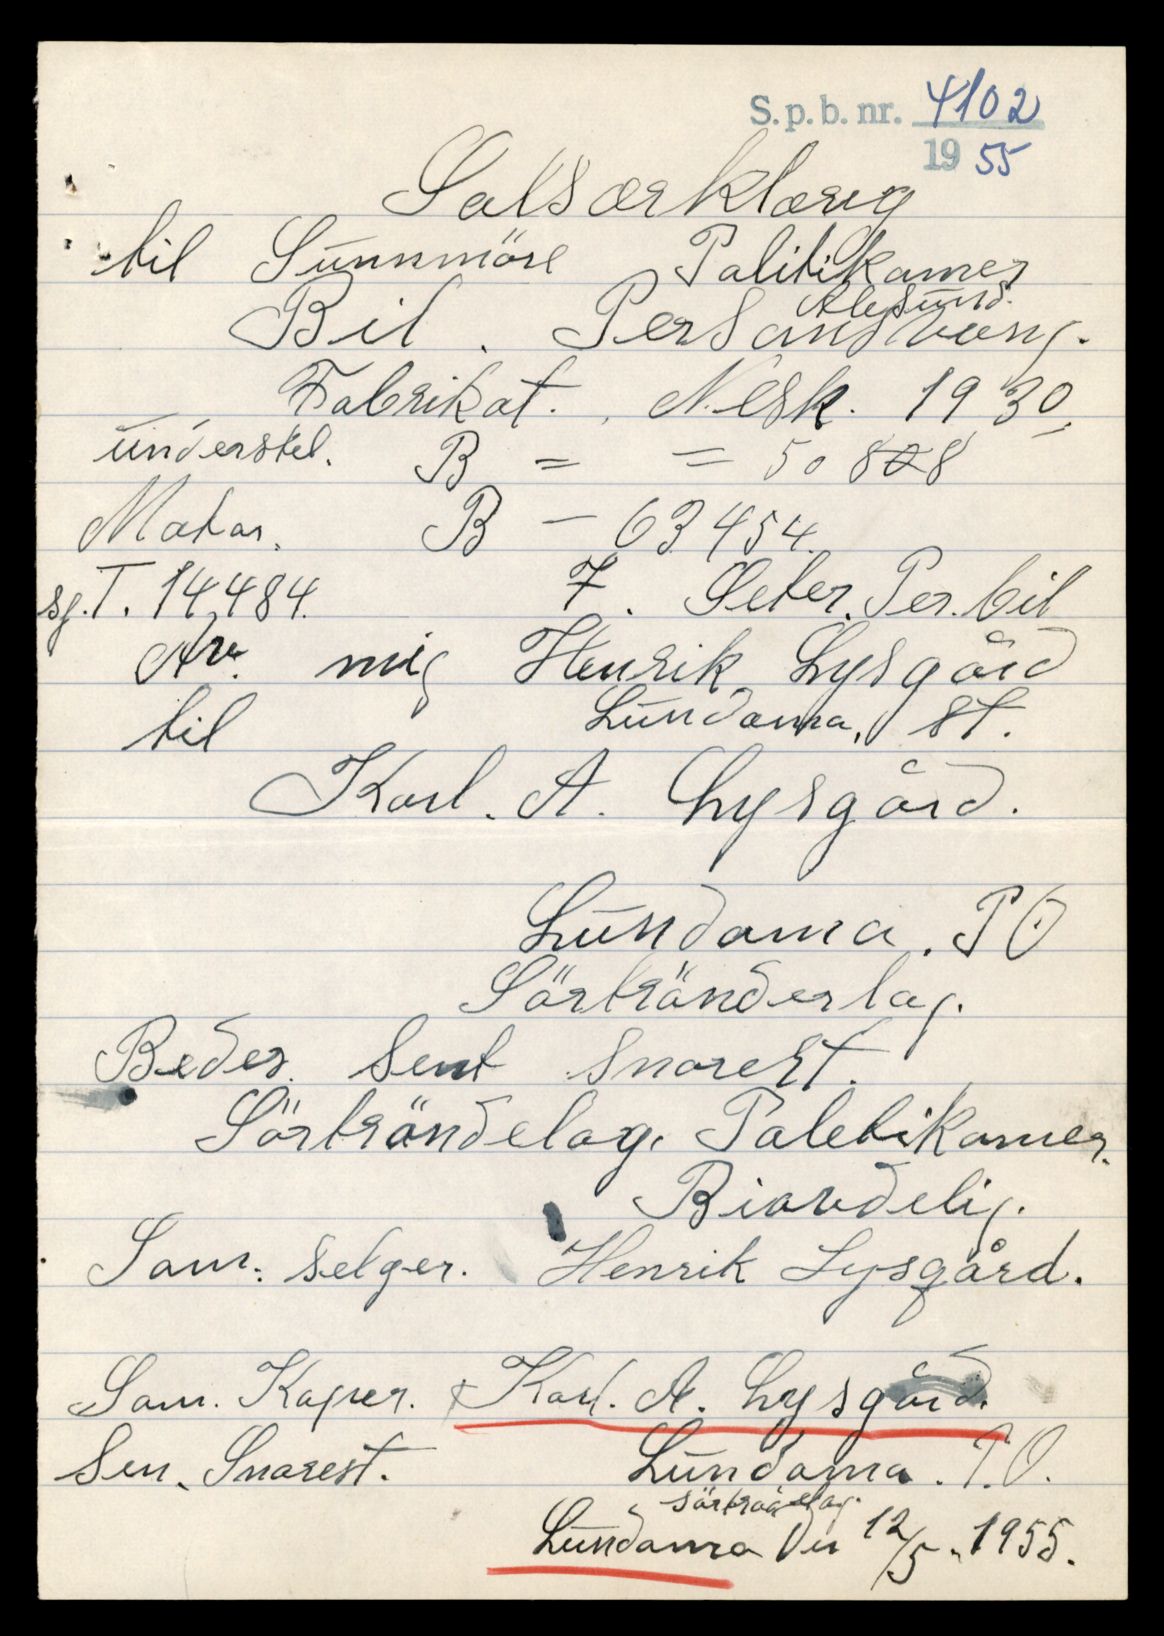 S.p.b. nr. 4102
19 55
Salsærklærig
til Sunnmöre Politikamer
Alesund.
Bil. Personsvang.
Fabrikat. Nesk. 1930.
understel. B = = 50 828
Motor. B - 63454.
sg. T. 14484. 7. Seter. Per. bil
Av. mig Henrik Lysgård
til Lundama, st.
Karl. A. Lysgård.
Lundama. P O
Sörtrönderlag.
Bedes sent snarest.
Sörtröndelag. Paletikamer.
Biavdelig.
Som: selger. Henrik Lysgård.
Som. Kaper. Karl. A. Lysgård.
Sen. Snarest. Lundama. P.O.
Lundama Den 12/5. 1955.